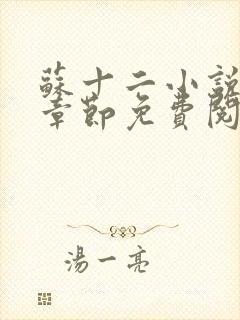 蘇十二小說
章節免費閱
湯一亮